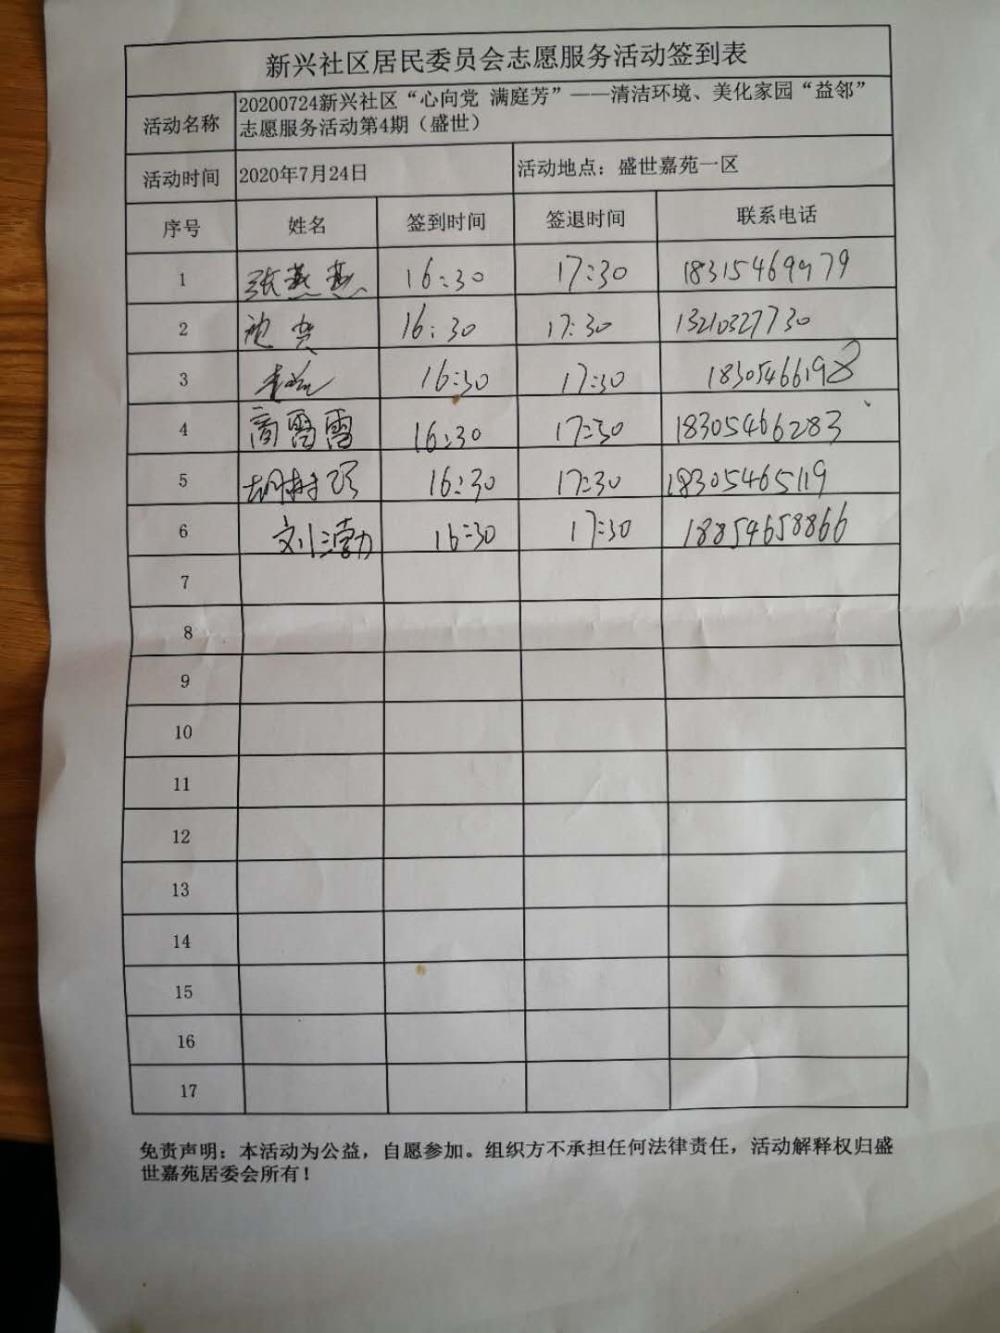 新兴社区居民委员会志愿服务活动签到表
活动名称 20200724新兴社区“心向党 满庭芳”——清洁环境、美化家园“益邻”
志愿服务活动第4期（盛世）
活动时间 2020年7月24日 活动地点：盛世嘉苑一区
序号 姓名 签到时间 签退时间 联系电话
1 张燕燕 16:30 17:30 18315469979
2 16:30 17:30 13210327730
3 16:30 17:30 18305466198
4 商雪雪 16:30 17:30 18305466283
5 16:30 17:30 18305465119
6 刘渤 16:30 17:30 18854658866
7
8
9
10
11
12
13
14
15
16
17
免责声明：本活动为公益，自愿参加。组织方不承担任何法律责任，活动解释权归盛
世嘉苑居委会所有！